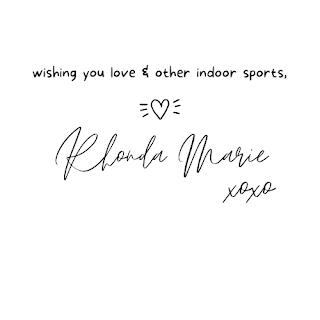 wishing you love & other indoor sports,
Rhonda Marie
xoxo